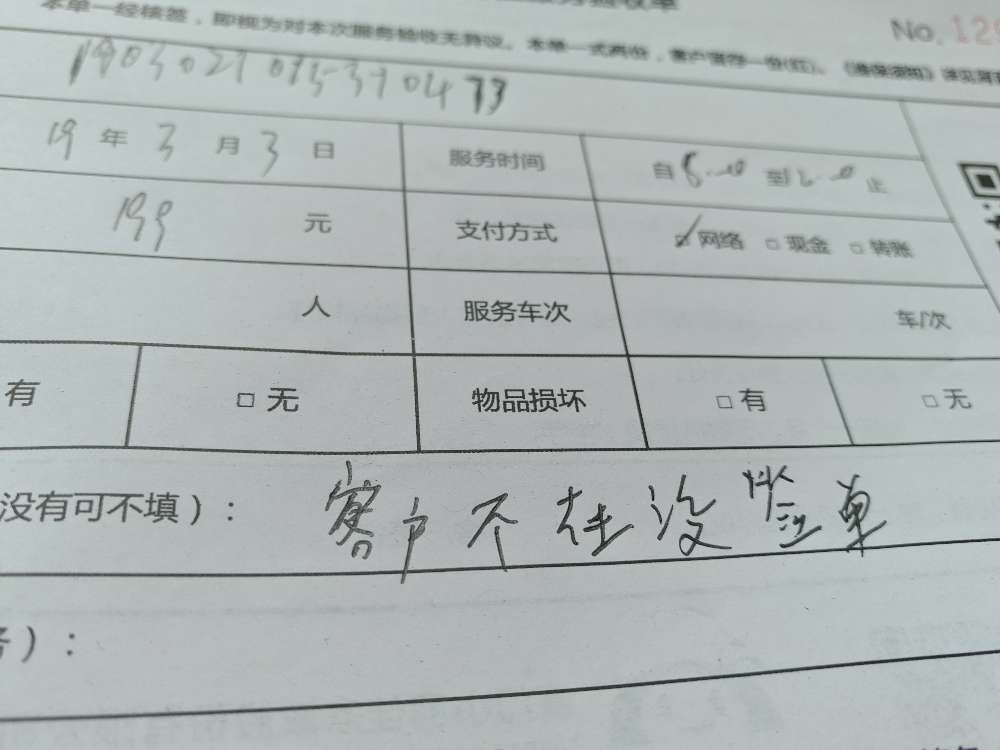 本单一经核签，即视为对本次服务验收无异议。本单一式两份，客户留存一份(红)。
No. 12
19 年 3 月 3 日 服务时间 自 8:00 至 12:00 止
199 元 支付方式 ☑ 网络 □ 现金 □ 转账
人 服务车次 车/次
有 □ 无 物品损坏 □ 有 □ 无
没有可不填）： 客户不在没签单
）：